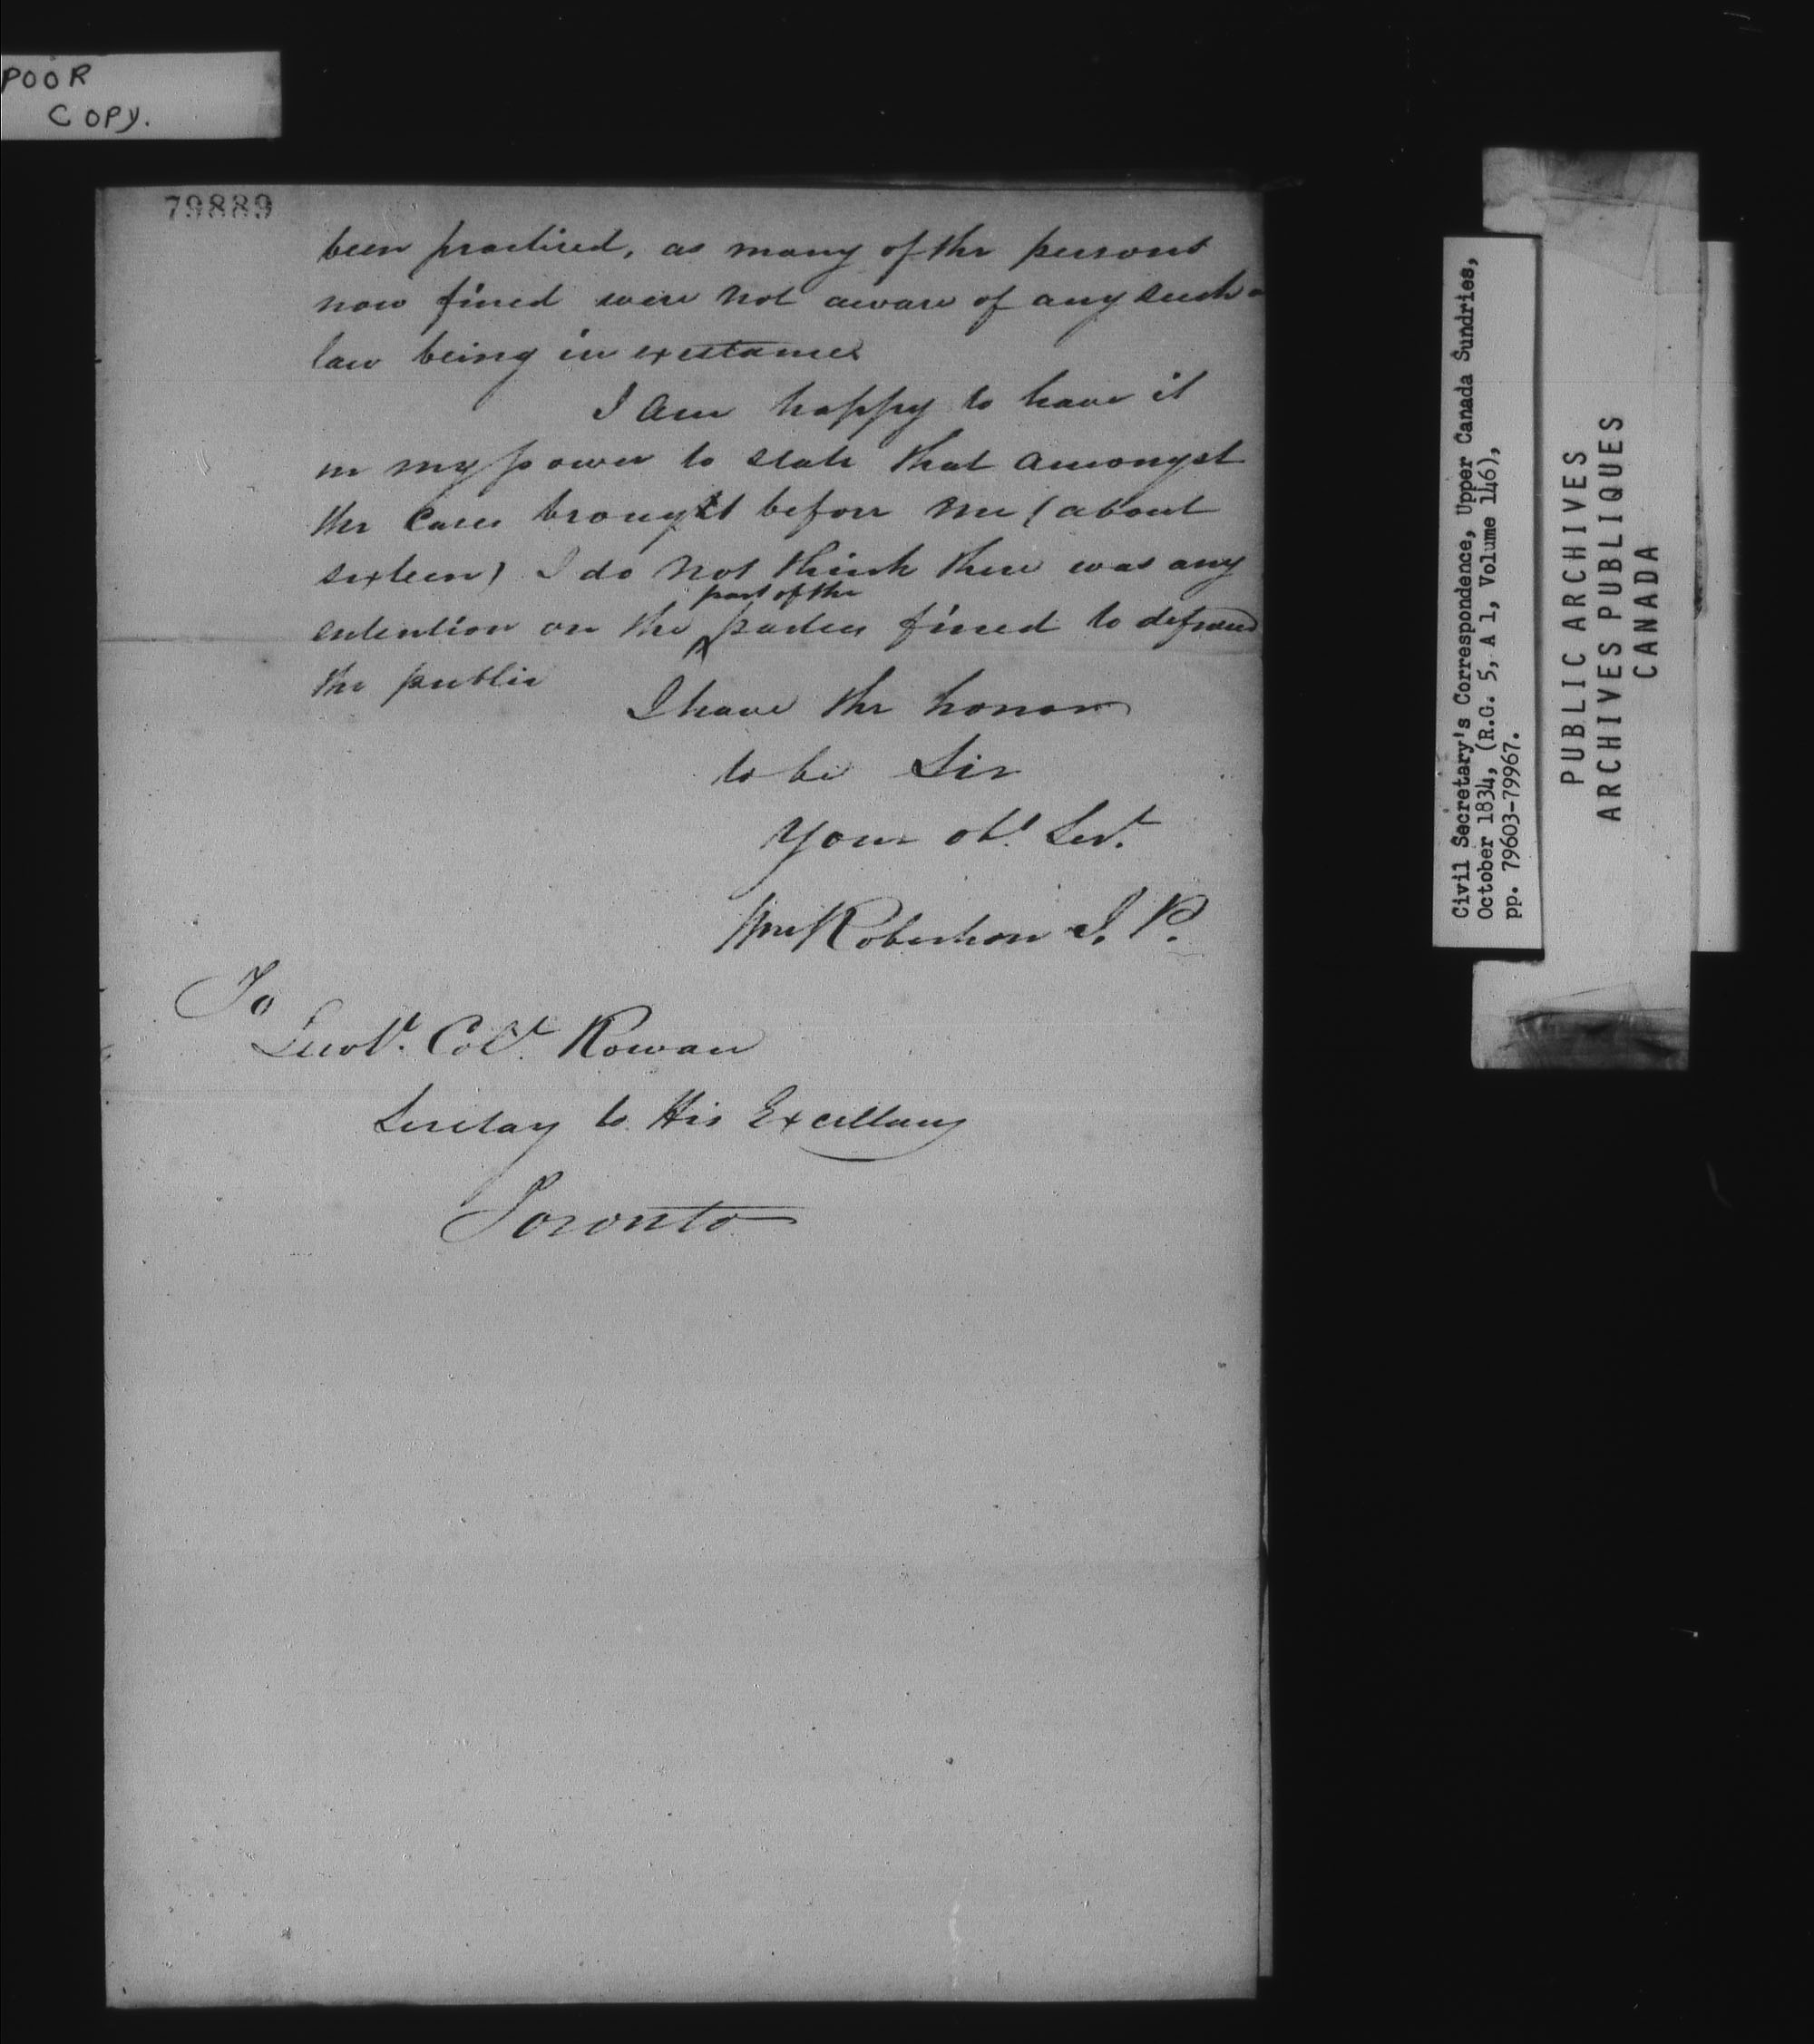 POOR
COPY.
79889
been practised, as many of the persons
now fined were not aware of any such a
law being in existance
I am happy to have it
in my power to state that amongst
the cases brought before me (about
sixteen) I do not think there was any
part of the
entention on the parties fined to defraud
the public
I have the honor
to be Sir
Your obt. Servt.
Wm Robertson J. P.
To
Lieut. Col. Rowan
Secretary to His Excellency
Toronto
Civil Secretary's Correspondence, Upper Canada Sundries,
October 1834, (R.G. 5, A 1, Volume 146),
pp. 79603-79967.
PUBLIC ARCHIVES
ARCHIVES PUBLIQUES
CANADA